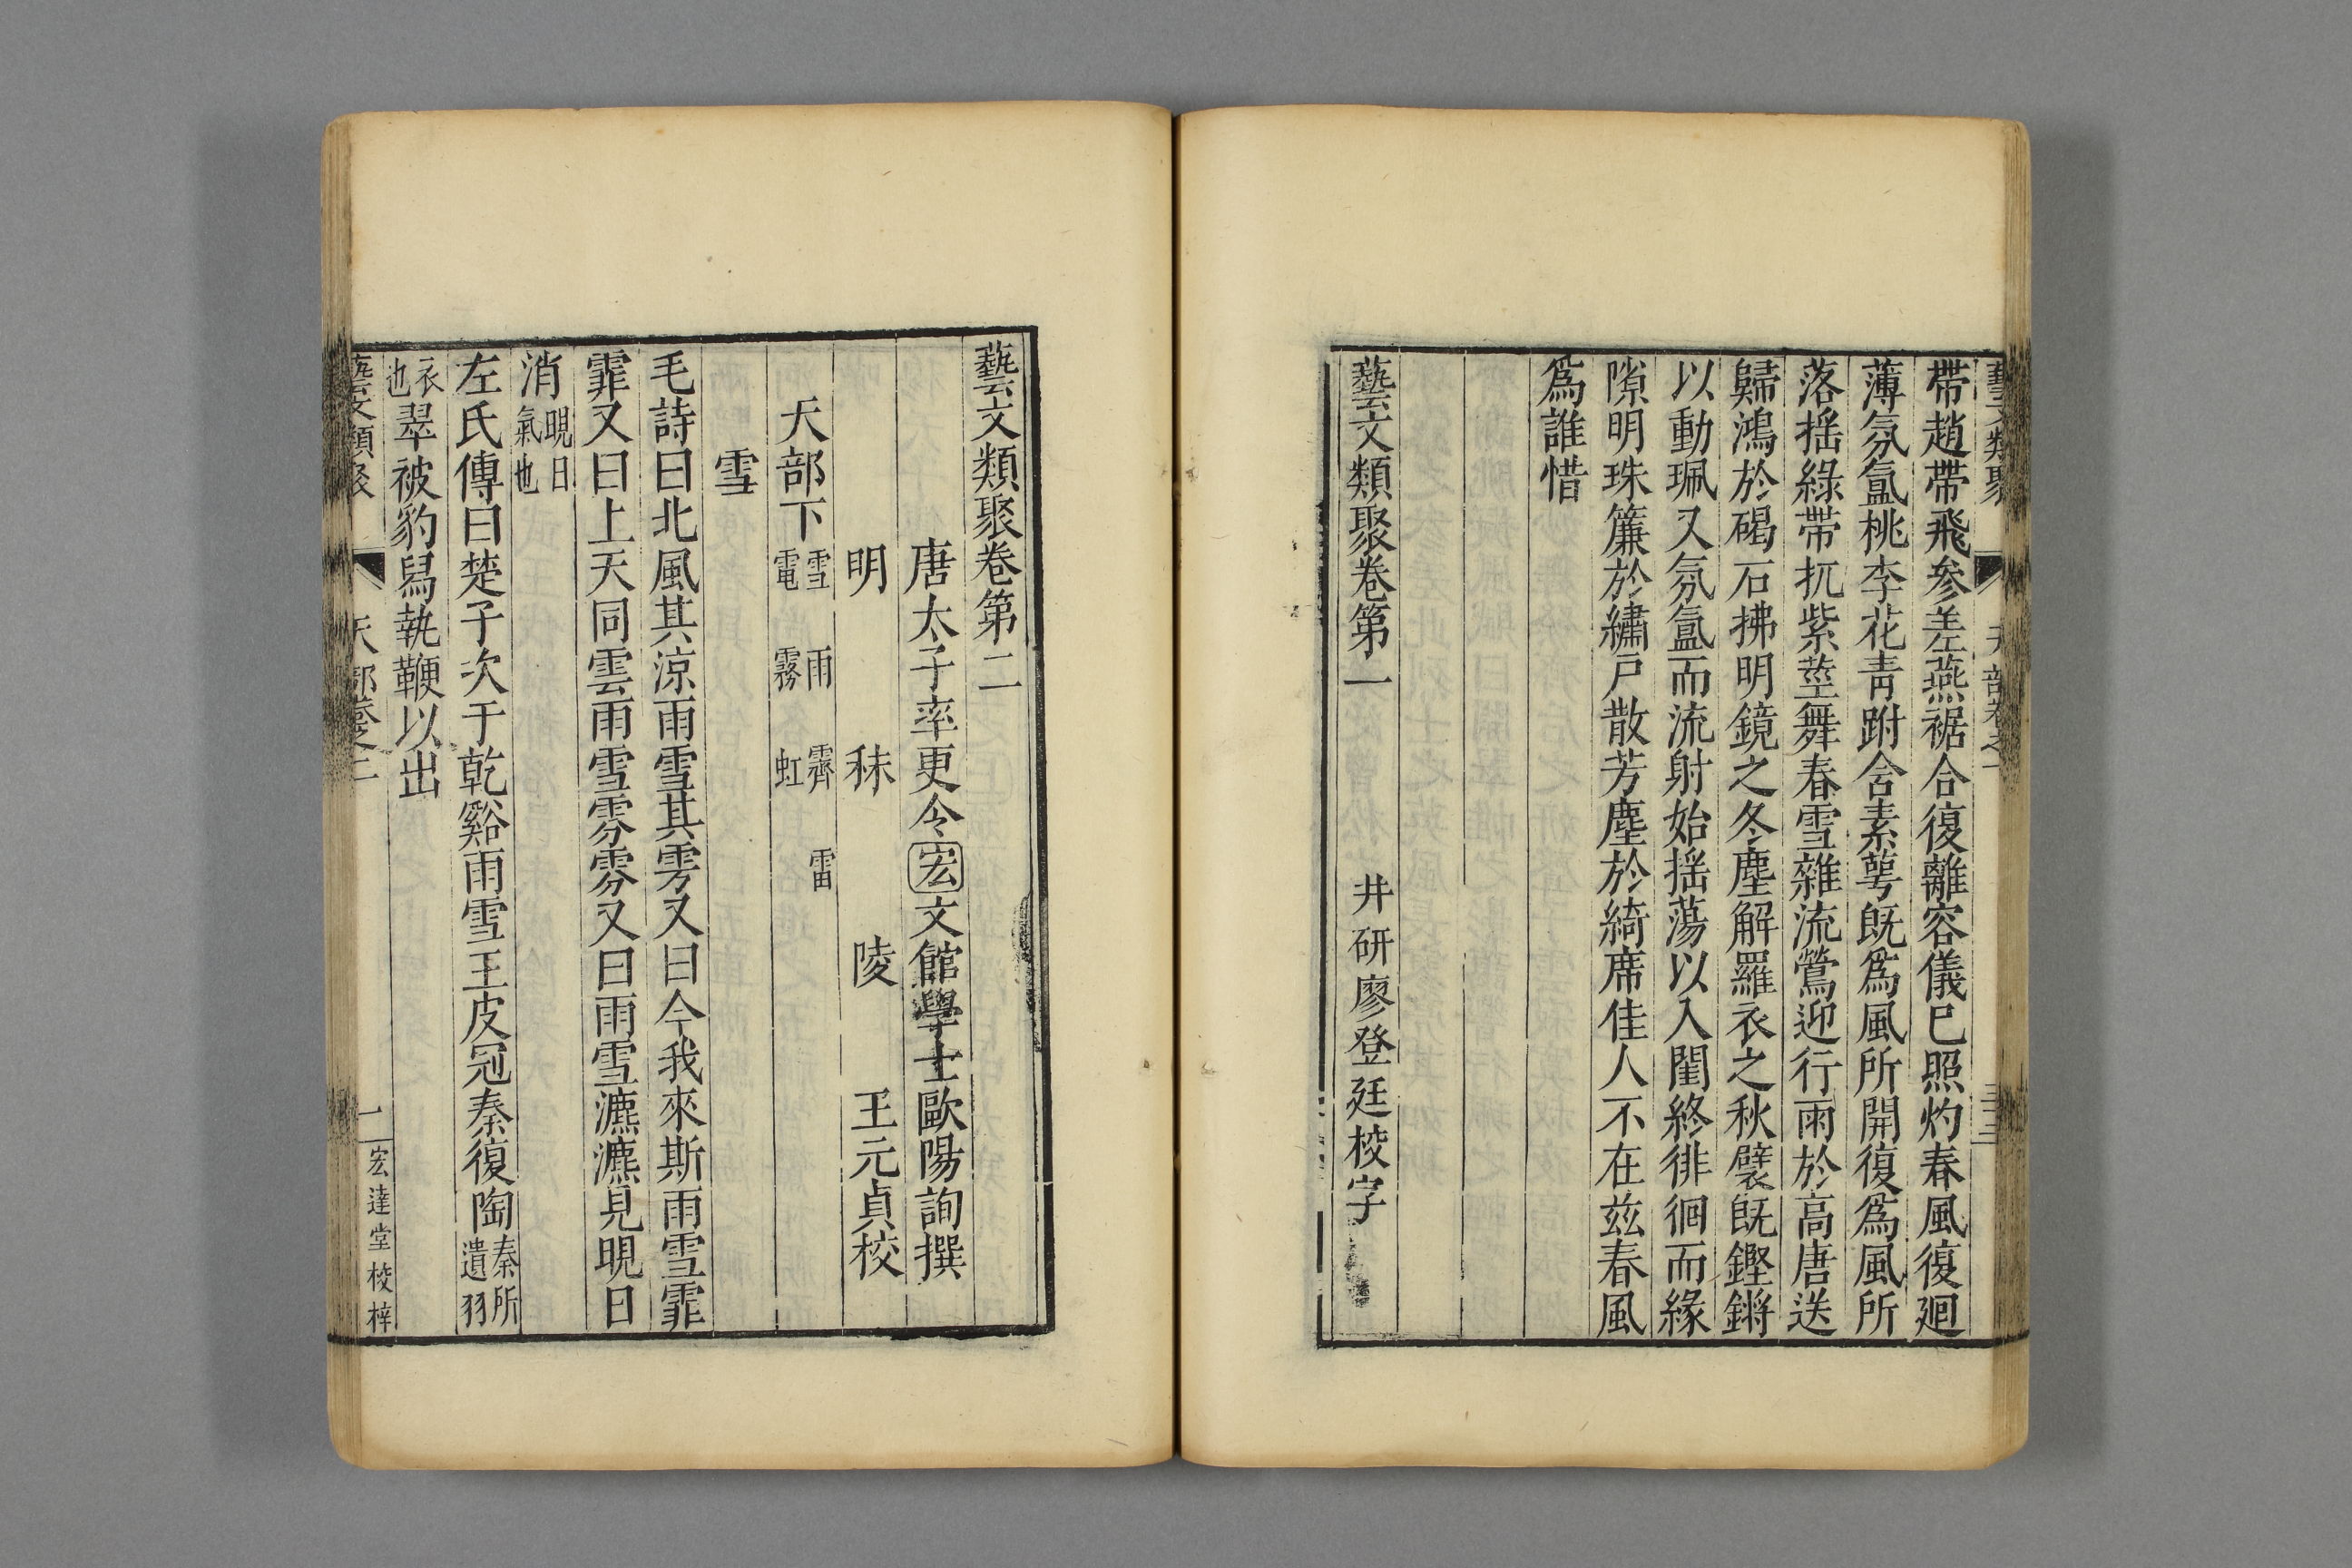 藝文類聚
天部卷之一
三十三
帶趙帶飛參差燕裾合復離容儀已照灼春風復廻
薄氛氳桃李花靑跗含素萼旣爲風所開復爲風所
落搖綠帶抏紫莖舞春雪雜流鶯迎行雨於高唐送
歸鴻於碣石拂明鏡之冬塵解羅衣之秋襞旣鏗鏘
以動珮又氛氳而流射始搖蕩以入閨終徘徊而緣
隙明珠簾於繡戸散芳塵於綺席佳人不在兹春風
爲誰惜
藝文類聚卷第一 井研廖登廷校字
藝文類聚卷第二
唐太子率更令宏文館學士歐陽詢撰
明 秣 陵 王元貞校
天部下 雪 雨 霽 雷
電 霧 虹
雪
毛詩曰北風其涼雨雪其雱又曰今我來斯雨雪霏
霏又曰上天同雲雨雪雰雰又曰雨雪瀌瀌見晛曰
消 晛日氣也
左氏傳曰楚子次于乾谿雨雪王皮冠秦復陶 秦所遺羽
衣也 翠被豹舄執鞭以出
藝文類聚
天部卷之二
一
宏達堂校梓